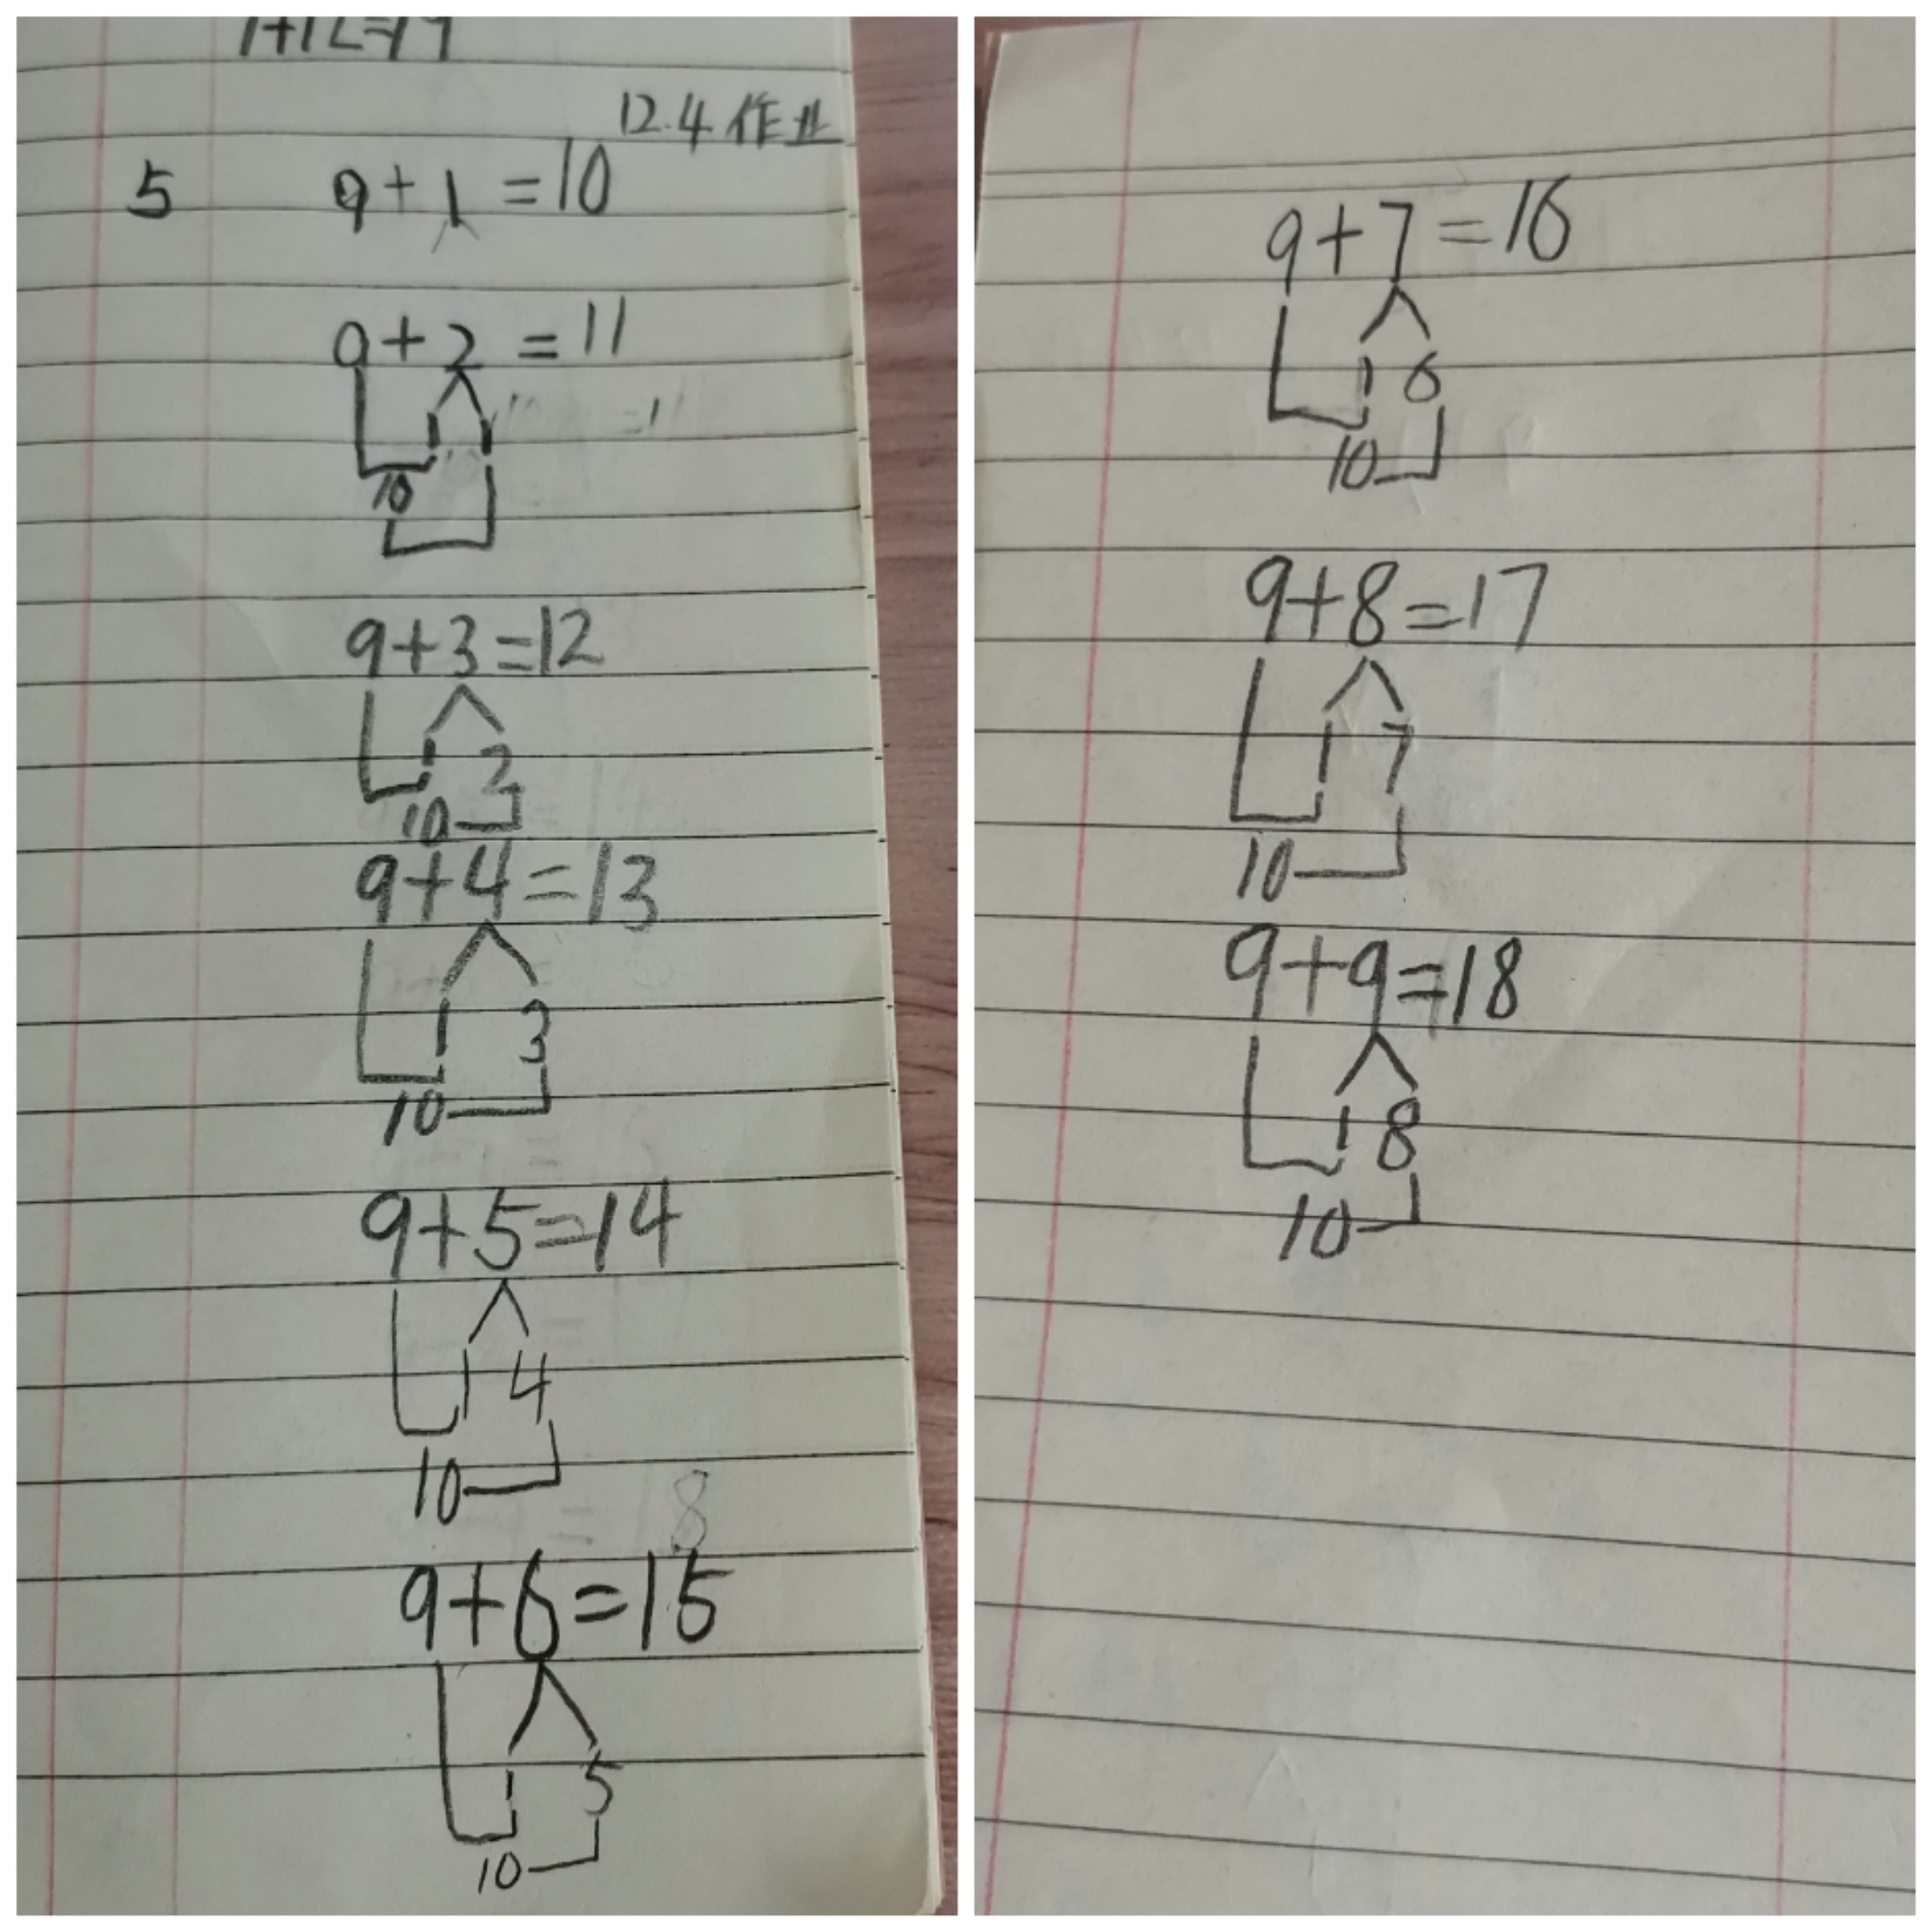 12.4 作业
5 9+1=10
9+2=11
1 1
10
9+3=12
1 2
10
9+4=13
1 3
10
9+5=14
1 4
10
9+6=15
1 5
10
9+7=16
1 6
10
9+8=17
1 7
10
9+9=18
1 8
10